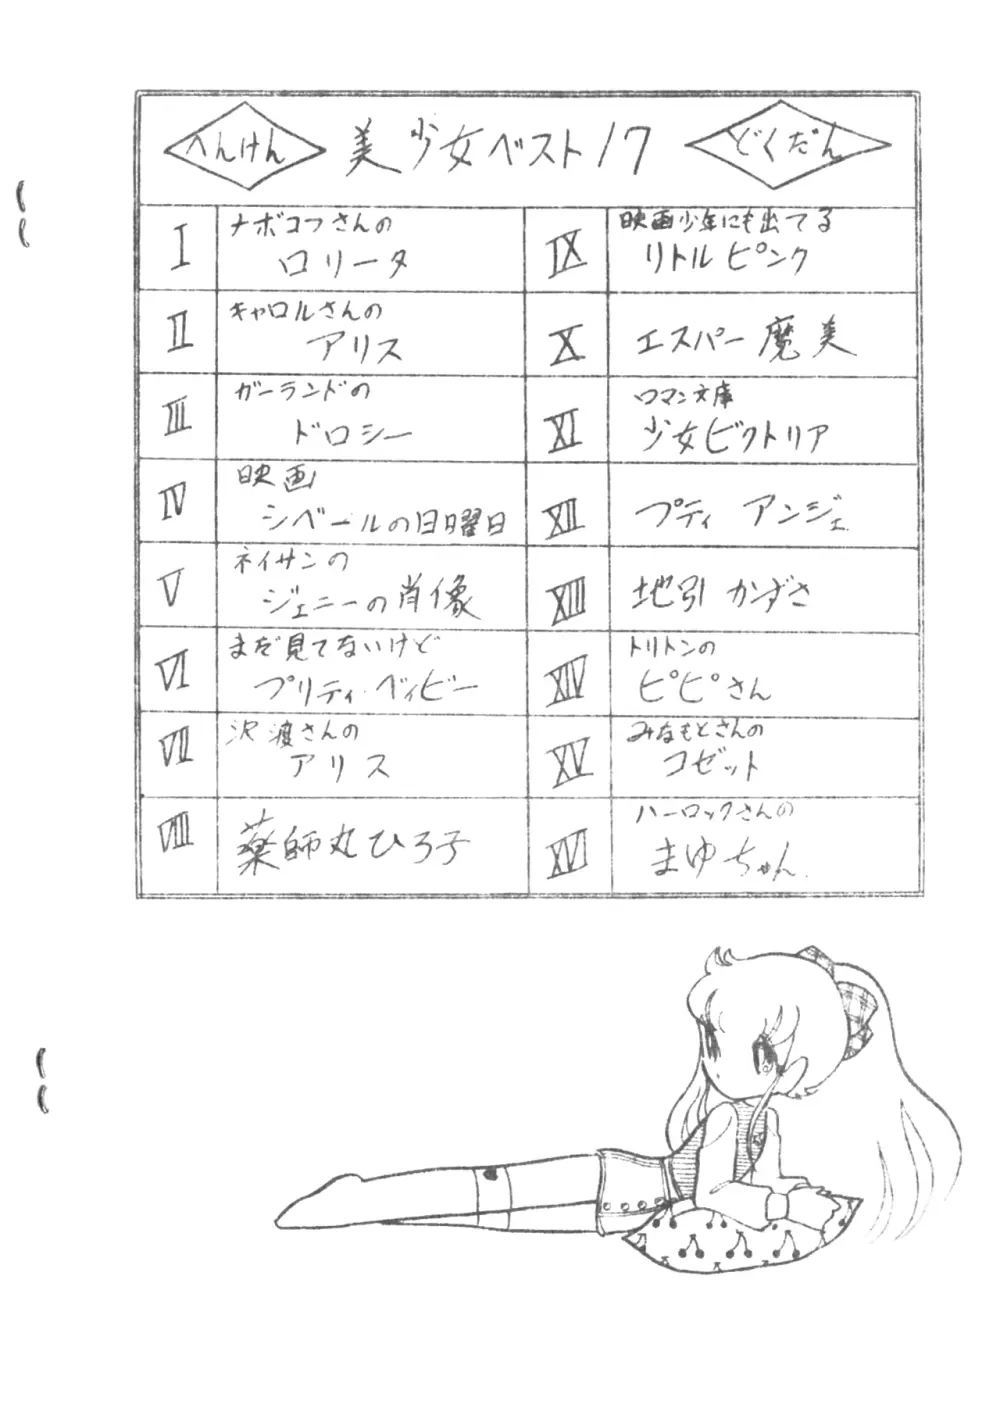 へんけん 美少女ベスト17 どくだん
I ナボコフさんの
ロリータ
II キャロルさんの
アリス
III ガーランドの
ドロシー
IV 映画
シベールの日曜日
V ネイサンの
ジェニーの肖像
VI まだ見てないけど
プリティ・ベイビー
VII 沢渡さんの
アリス
VIII 薬師丸ひろ子
IX 映画少年にも出てる
リトルピンク
X エスパー魔美
XI ロマン文庫
少女ビクトリア
XII プティ アンジェ
XIII 地引 かずさ
XIV トリトンの
ピピさん
XV みなもとさんの
コゼット
XVI ハーロックさんの
まゆちゃん.